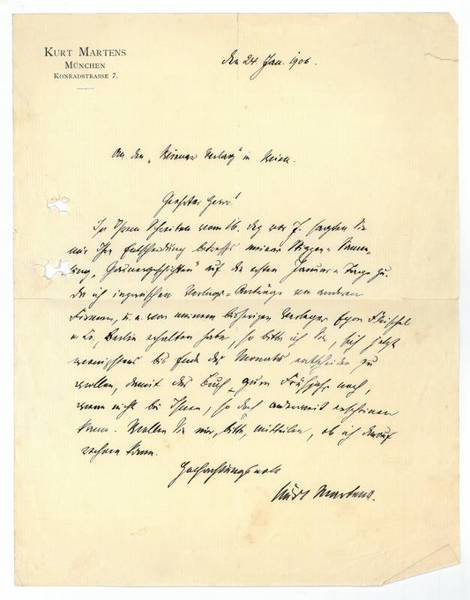 KURT MARTENS
MÜNCHEN
KONRADSTRASSE 7.
den 24 Jan. 1906.
An den „Wiener Verlag" in Wien.
Geehrter Herr!
In Ihrem Schreiben vom 16. Dez vor. J. sagten Sie
mir Ihre Entscheidung betreffs meiner
„Gaunergeschichten" auf die ersten Januar-Tage zu.
Da ich inzwischen Verlags-Anträge von anderen
Firmen, u. a. von meinem bisherigen Verleger Egon Fleischel
u Co, Berlin erhalten habe, so bitte ich Sie, sich jetzt
wenigstens bis Ende des Monats entscheiden zu
wollen, damit das Buch zum Frühjahr noch,
wenn nicht bei Ihnen, so doch anderweit erscheinen
kann. Wollen Sie mir, bitte, mitteilen, ob ich darauf
rechnen kann.
Hochachtungsvoll
Kurt Martens.